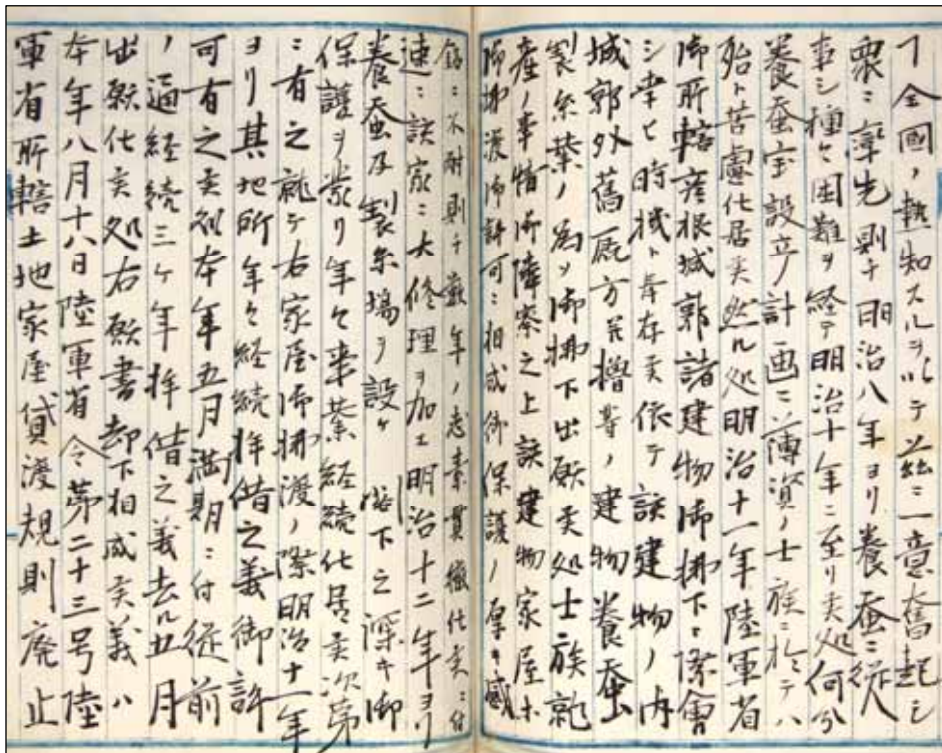 下全国ノ熟知スルヲ以テ茲ニ一意奮起シ
衆ニ率先則チ明治八年ヨリ養蚕ニ従
事シ種々困難ヲ経テ明治十年ニ至リ候処何分
養蚕室設立ノ計画ニ薄資ノ士族ニ於テハ
殆ト苦慮仕居候然ル処明治十一年陸軍省
御所轄彦根城郭諸建物御払下ニ際会
シ幸ヒ時機ト奉存候依テ該建物ノ内
城郭外旧厩方并櫓等ノ建物養蚕
製糸業ノ為メ御払下出願候処士族就
産ノ事情御隣察之上該建物家屋ホ
御払渡御許可ニ相成御保護ノ厚キ感
銘ニ不耐則チ数年ノ志素貫徹仕候ニ付
速ニ該家ニ大修理ヲ加エ明治十二年ヨリ
養蚕及製糸場ヲ設ケ 下之深キ御
保護ヲ蒙リ年々事業経続仕居候次第
ニ有之就テ右家屋御払渡ノ際明治十一年
ヨリ其地所年々経続拝借之義御許
可有之候処本年五月満期ニ付従前
ノ通経続三ヶ年拝借之義去ル五月
出願仕候処右願書却下相成候義ハ
本年八月十八日陸軍省令第二十三号陸
軍省所轄土地家屋貸渡規則廃止